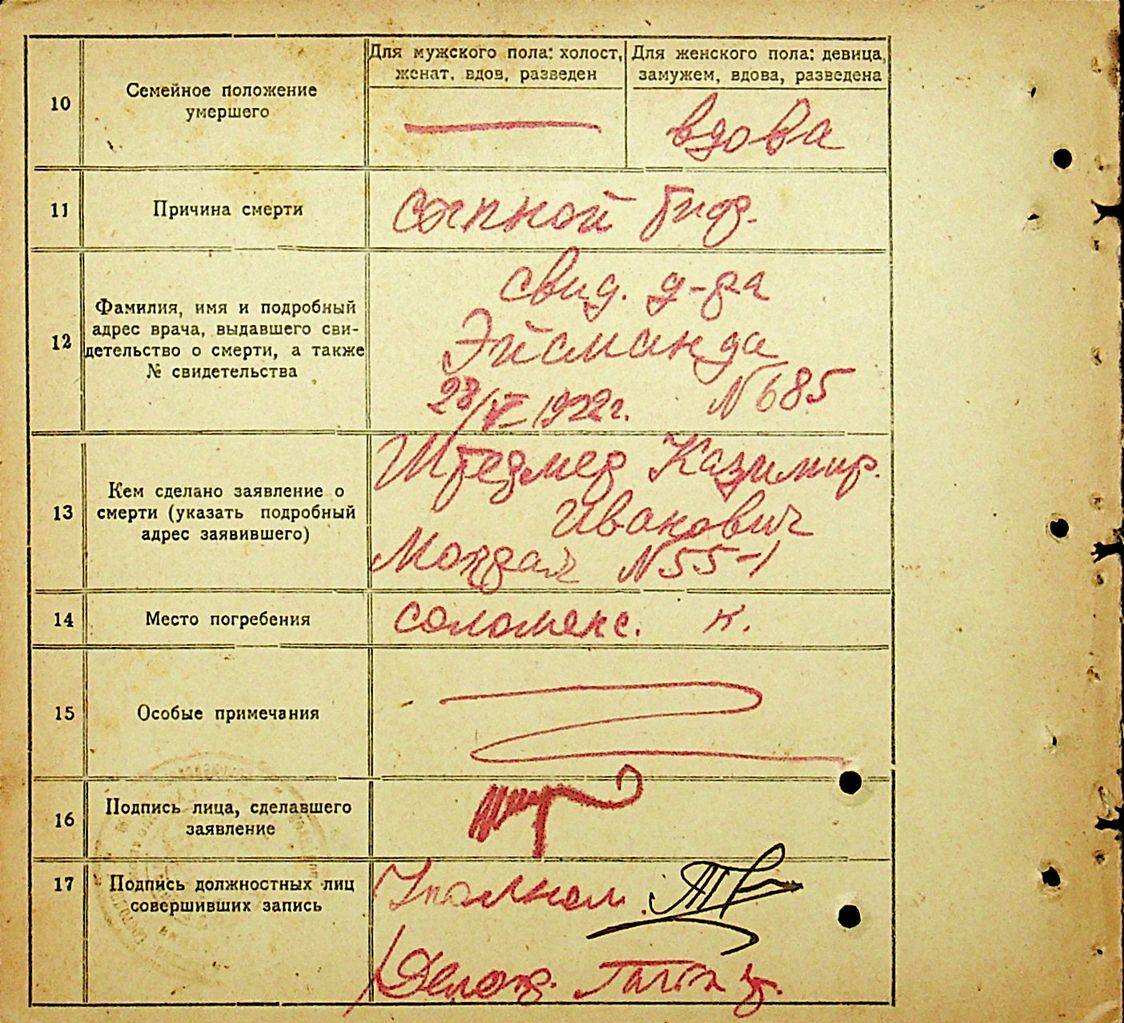 10
Семейное положение
умершего
Для мужского пола: холост,
женат, вдов, разведен
Для женского пола: девица,
замужем, вдова, разведена
вдова
11
Причина смерти
сыпной тиф.
12
Фамилия, имя и подробный
адрес врача, выдавшего сви-
детельство о смерти, а также
№ свидетельства
свид. д-ра
Эйсманда
1922г. N 685
13
Кем сделано заявление о
смерти (указать подробный
адрес заявившего)
Казимир.
Иванович
N 55-1
14
Место погребения
соломенс. к.
15
Особые примечания
16
Подпись лица, сделавшего
заявление
17
Подпись должностных лиц
совершивших запись
Уполном.
Делопр.